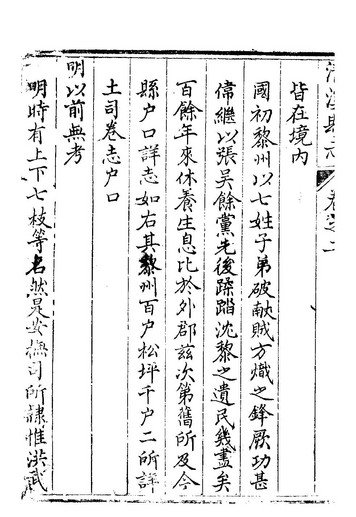 清溪縣志 卷之二
皆在境內
國初黎州以七姓子弟破献賊方熾之鋒厥功甚
偉繼以張吳餘黨先後蹂踏沈黎之遺民幾盡矣
百餘年來休養生息比於外郡茲次第舊所及今
縣户口詳志如右其黎州百户松坪千户二所詳
土司卷志户口
明以前無考
明時有上下七枝等名然是安撫司所隸惟洪武